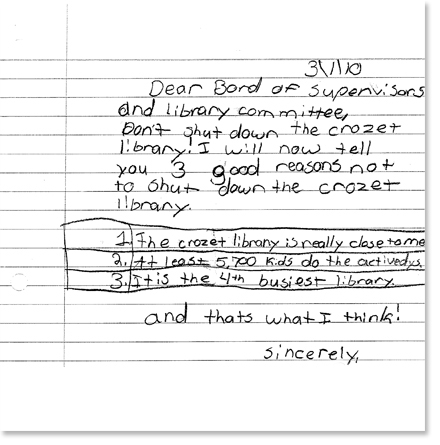 3/1/10
Dear Bord of supervisors
and library committee,
Don't shut down the crozet
library! I will now tell
you 3 good reasons not
to shut down the crozet
library.
1. The crozet library is really close to me
2. At least 5,700 kids do the activedys.
3. It is the 4th busiest library.
and thats what I think!
sincerely,